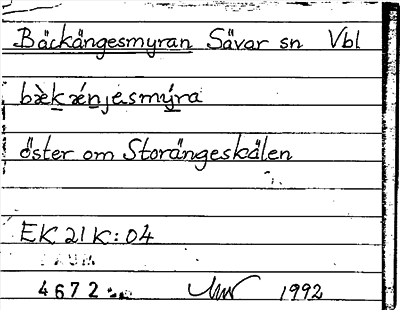 Bäckängesmyran Sävar sn Vbl
bæ̀kǽnjesmýra
öster om Storängeskälen
EK 21K:04
4672
1992